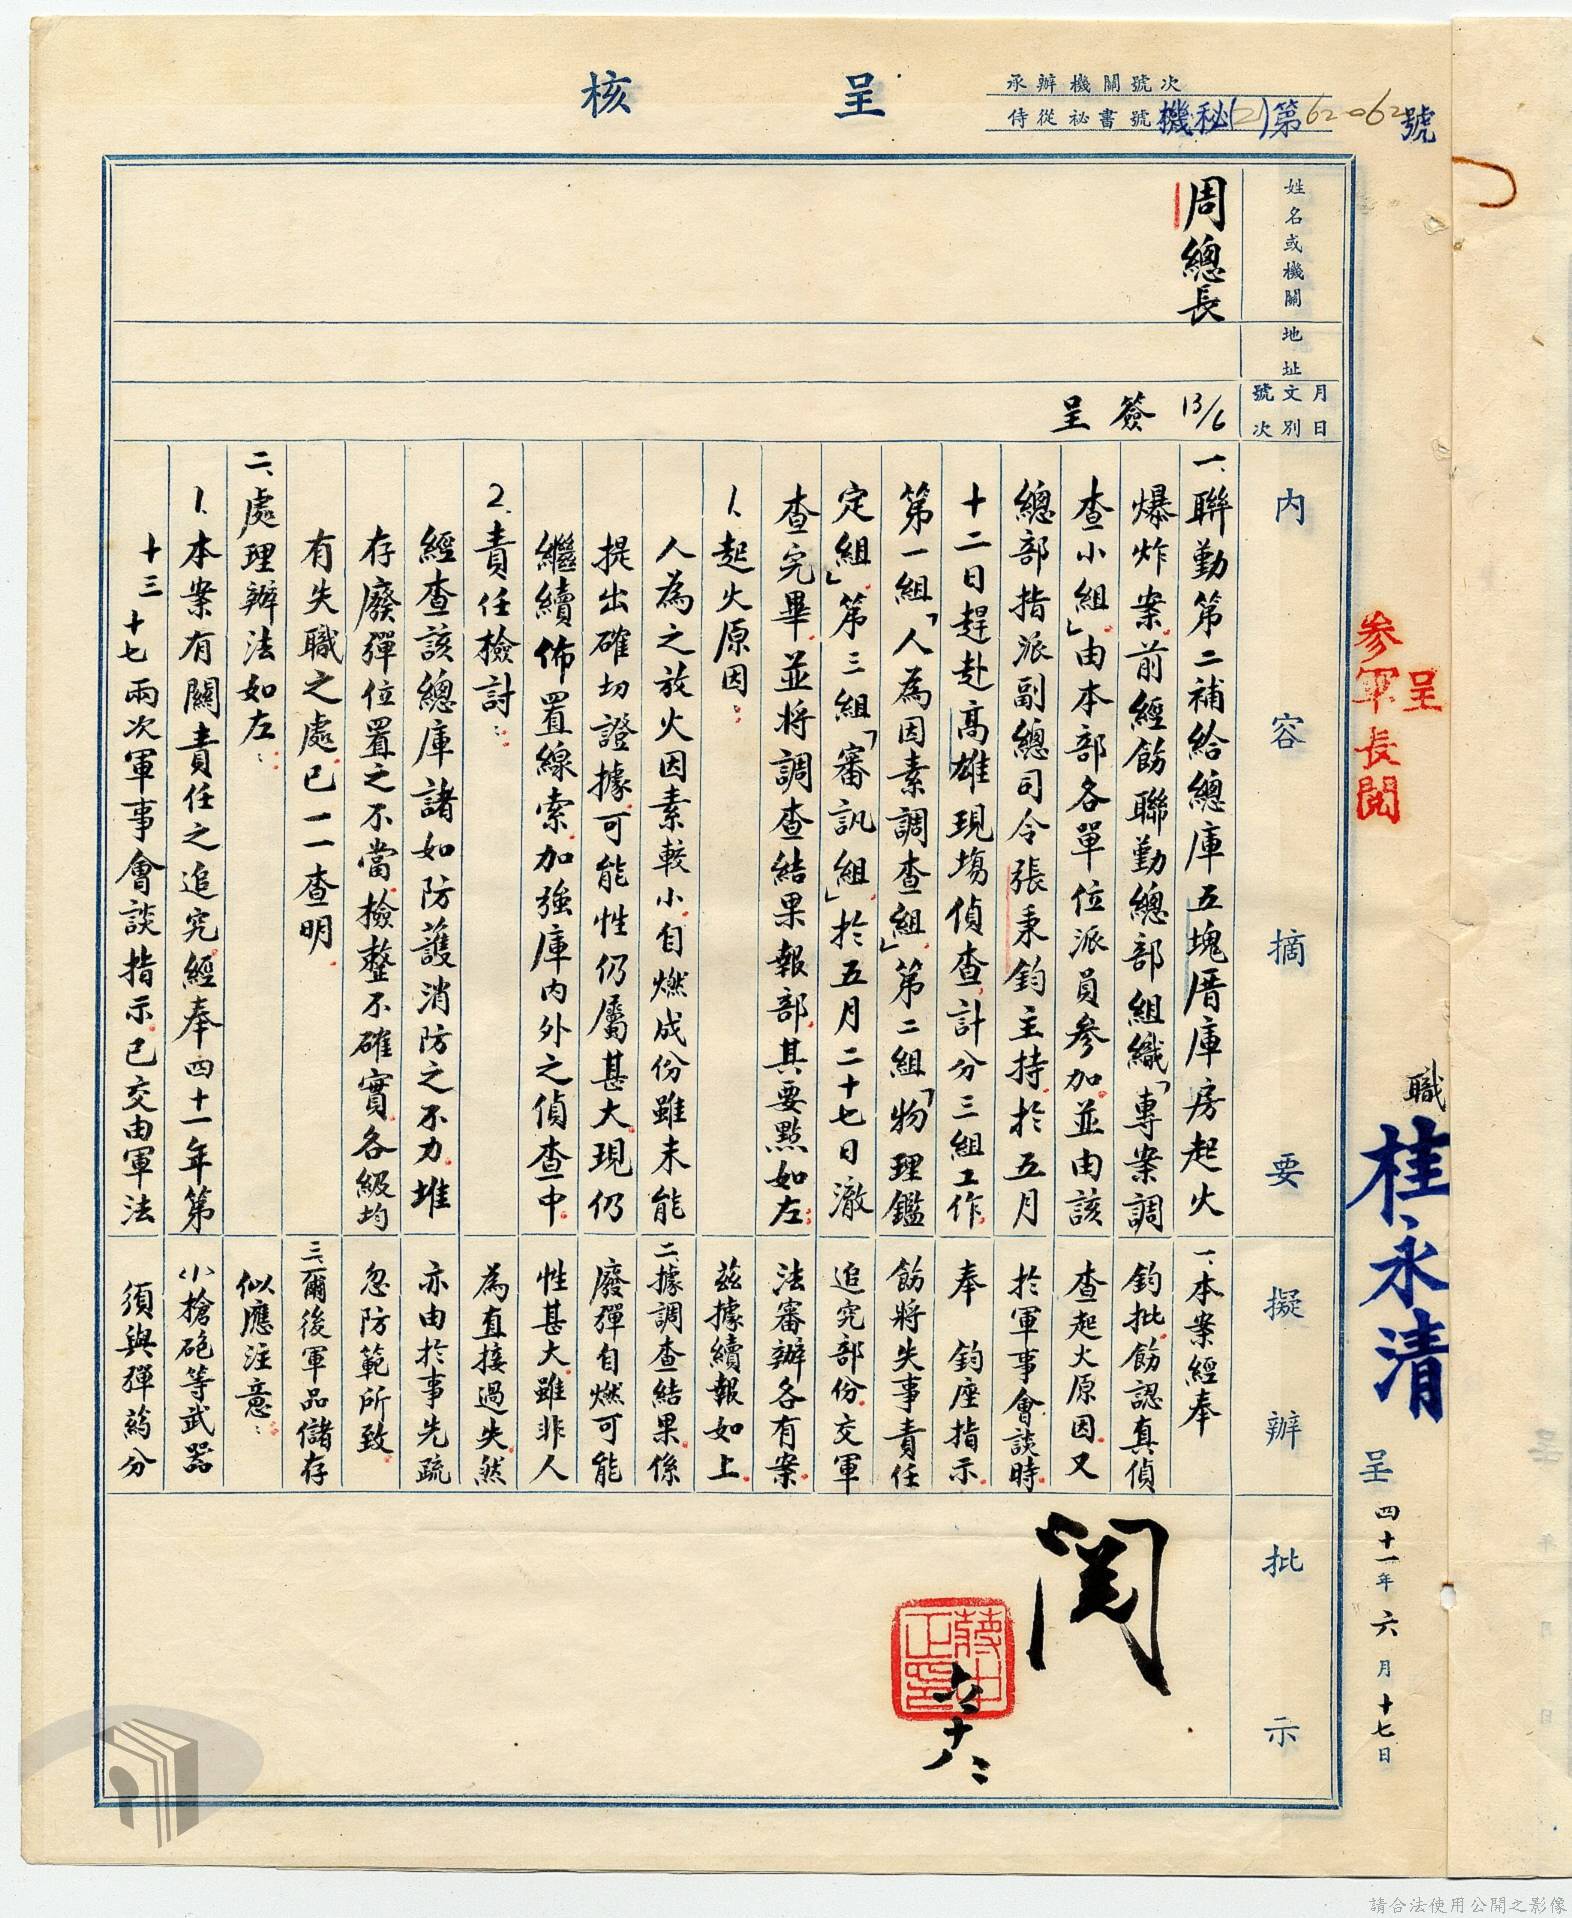 呈核
承辦機關號次
侍從祕書號 機秘(2)第62-062號
姓名或機關
周總長
地址
月日
文別
號次
13/6
簽呈
內容摘要
一、聯勤第二補給總庫五塊厝庫房起火
爆炸案.前經飭聯勤總部組織「專案調
查小組」由本部各單位派員參加.並由該
總部指派副總司令張秉鈞主持.於五月
十二日趕赴高雄現場偵查.計分三組工作.
第一組「人為因素調查組」.第二組「物理鑑
定組」.第三組「審訊組」.於五月二十七日澈
查完畢.並將調查結果報部.其要點如左:
1.起火原因:
人為之放火因素較小.自燃成份雖未能
提出確切證據.可能性仍屬甚大.現仍
繼續佈置線索.加強庫內外之偵查中.
2.責任檢討:
經查該總庫諸如防護消防之不力.堆
存廢彈位置之不當.檢整不確實.各級均
有失職之處.已一一查明.
二、處理辦法如左:
1.本案有關責任之追究.經奉四十一年第
十三十七兩次軍事會談指示.已交由軍法
擬辦
一、本案經奉
鈞批.飭認真偵
查起火原因.又
於軍事會談時.
奉 鈞座指示
飭將失事責任
追究部份.交軍
法審辦各有案.
茲據續報如上.
二、據調查結果.係
廢彈自燃可能
性甚大.雖非人
為直接過失.然
亦由於事先疏
忽防範所致.
三、爾後軍品儲存
似應注意:
小槍砲等武器
須與彈葯分
批示
閱
六、十八、
呈
參軍長閱
職 桂永清 呈 四十一年六月十七日
請合法使用公開之影像